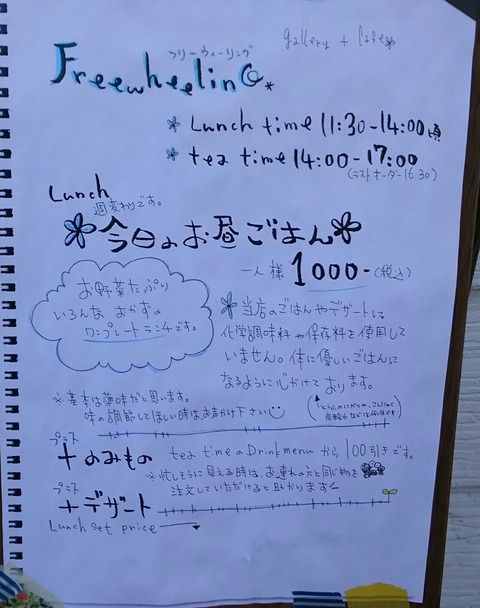 gallery + Cafe
フリーウィーリング
FreewheelinG
Lunch time 11:30-14:00頃
tea time 14:00-17:00
(ラストオーダー16:30)
Lunch
週変わりです。
今日のお昼ごはん
一人様 1000-(税込)
お野菜たっぷり
いろんな おかずの
ワンプレートランチです。
当店のごはんやデザートは
化学調味料や保存料を使用して
いません。体に優しいごはんに
なるように心がけて おります。
※基本は薄味だと思います。
味の調節してほしい時は、お声かけ下さい
プラス
+のみもの tea timeのDrink menuから100引きです。
※忙しそうに見える時は、お連れの方と同じ物を
注文していただけると助かります
プラス
+デザート
Lunch set price